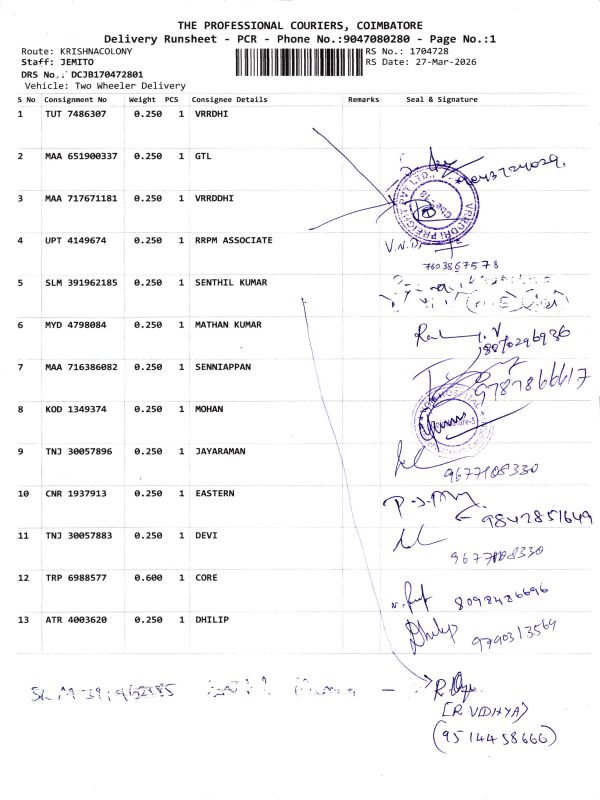 THE PROFESSIONAL COURIERS, COIMBATORE
Delivery Runsheet - PCR - Phone No.:9047080280 - Page No.:1
Route: KRISHNACOLONY RS No.: 1704728
Staff: JEMITO RS Date: 27-Mar-2026
DRS No.: DCJB170472801
Vehicle: Two Wheeler Delivery
S No Consignment No Weight PCS Consignee Details Remarks Seal & Signature
1 TUT 7486307 0.250 1 VRRDHI
2 MAA 651900337 0.250 1 GTL
3 MAA 717671181 0.250 1 VRRDDHI
4 UPT 4149674 0.250 1 RRPM ASSOCIATE V.N.D
7603867578
5 SLM 391962185 0.250 1 SENTHIL KUMAR
6 MYD 4798084 0.250 1 MATHAN KUMAR
8870296936
7 MAA 716386082 0.250 1 SENNIAPPAN
9787866617
8 KOD 1349374 0.250 1 MOHAN
9 TNJ 30057896 0.250 1 JAYARAMAN
9677108330
10 CNR 1937913 0.250 1 EASTERN
9842851649
11 TNJ 30057883 0.250 1 DEVI
9677108330
12 TRP 6988577 0.600 1 CORE
8098426696
13 ATR 4003620 0.250 1 DHILIP Dhilip 9790313569
SLM-391962185
[R.VIDHYA]
(9514458666)